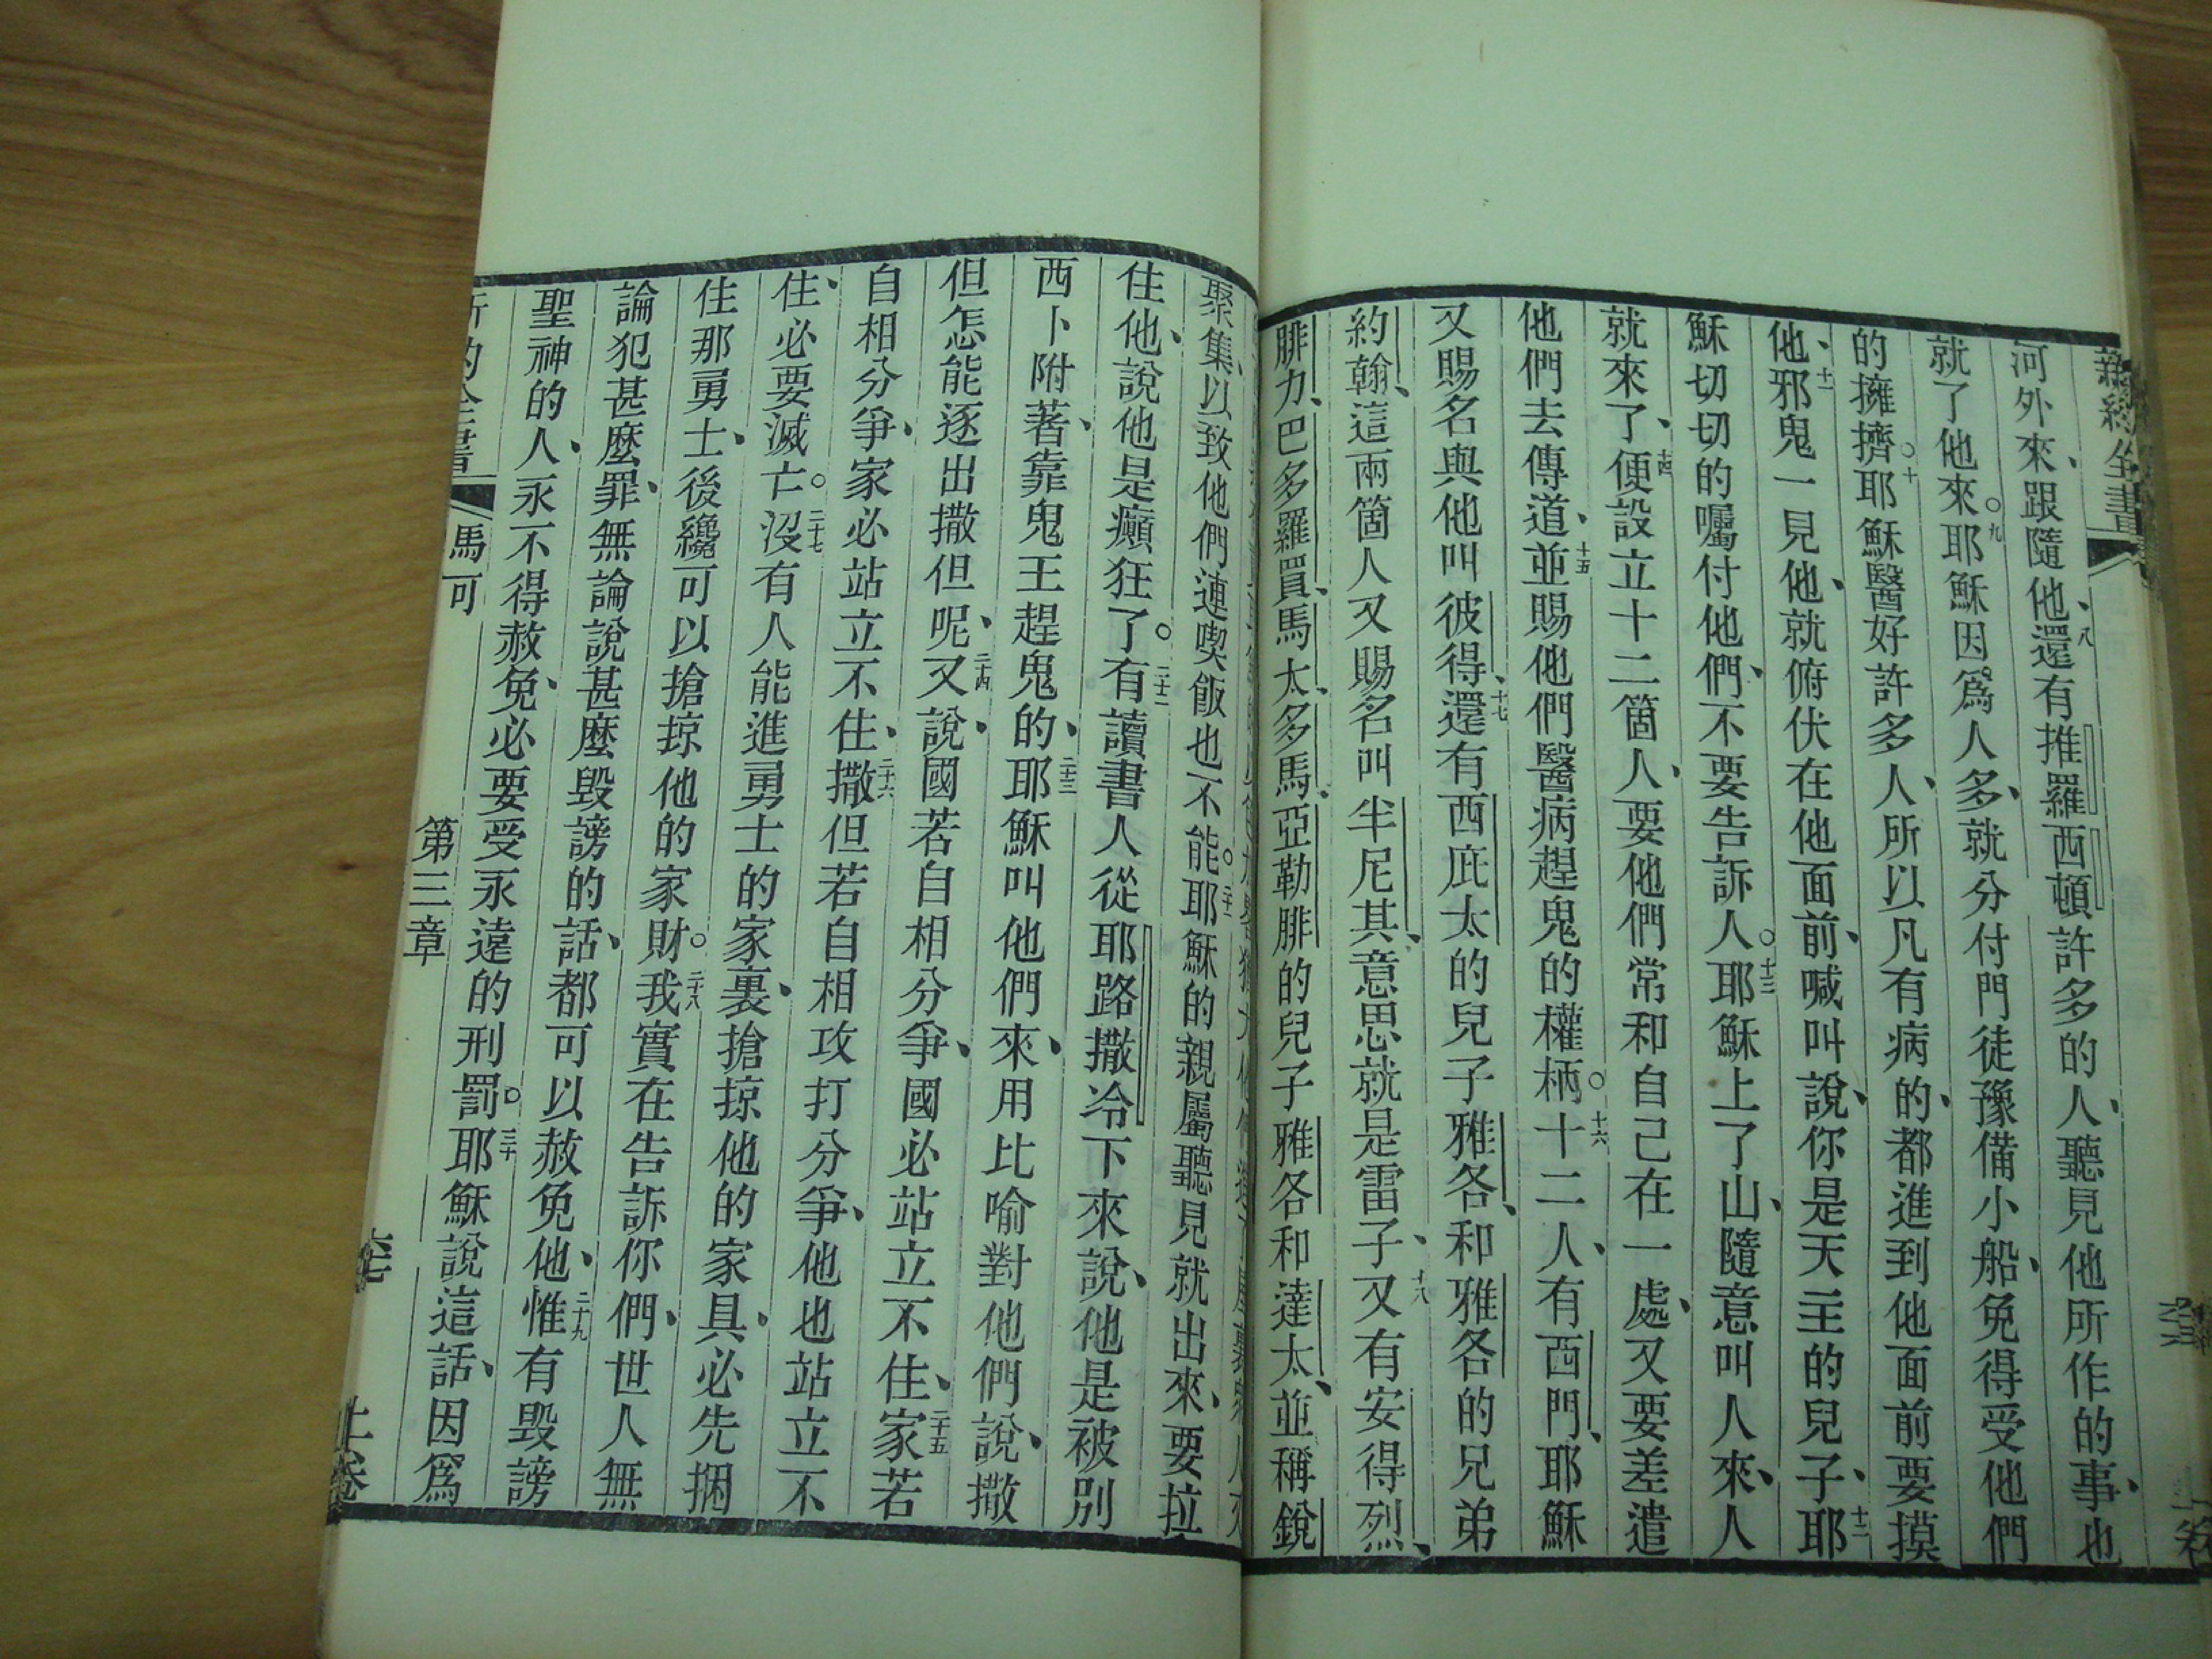 新約全書
河外來、跟隨他、八還有推羅西頓許多的人、聽見他所作的事、也
就了他來。九耶穌因爲人多、就分付門徒豫備小船、免得受他們
的擁擠。十耶穌醫好許多人、所以凡有病的、都進到他面前要摸
他、十一邪鬼一見他、就俯伏在他面前、喊叫說、你是天主的兒子、十二耶
穌切切的囑付他們、不要告訴人。十三耶穌上了山、隨意叫人來、人
就來了、十四便設立十二箇人、要他們常和自己在一處、又要差遣
他們去傳道、十五並賜他們醫病趕鬼的權柄。十六十二人、有西門、耶穌
又賜名與他叫彼得、十七還有西庇太的兒子雅各、和雅各的兄弟
約翰、這兩箇人又賜名叫半尼其、意思就是雷子、十八又有安得烈、
腓力、巴多羅買、馬太、多馬、亞勒腓的兒子雅各和達太、並稱銳
聚集、以致他們連喫飯也不能。二十一耶穌的親屬聽見就出來、要拉
住他、說他是癲狂了。二十二有讀書人從耶路撒冷下來說、他是被別
西卜附著、靠鬼王趕鬼的、二十三耶穌叫他們來、用比喻對他們說、撒
但怎能逐出撒但呢、二十四又說、國若自相分爭、國必站立不住、二十五家若
自相分爭、家必站立不住、二十六撒但若自相攻打分爭、他也站立不
住、必要滅亡。二十七沒有人能進勇士的家裏、搶掠他的家具、必先捆
住那勇士、後纔可以搶掠他的家財。二十八我實在告訴你們、世人無
論犯甚麼罪、無論說甚麼毀謗的話、都可以赦免他、二十九惟有毀謗
聖神的人、永不得赦免、必要受永遠的刑罰。三十耶穌說這話、因爲
馬可 第三章 上卷